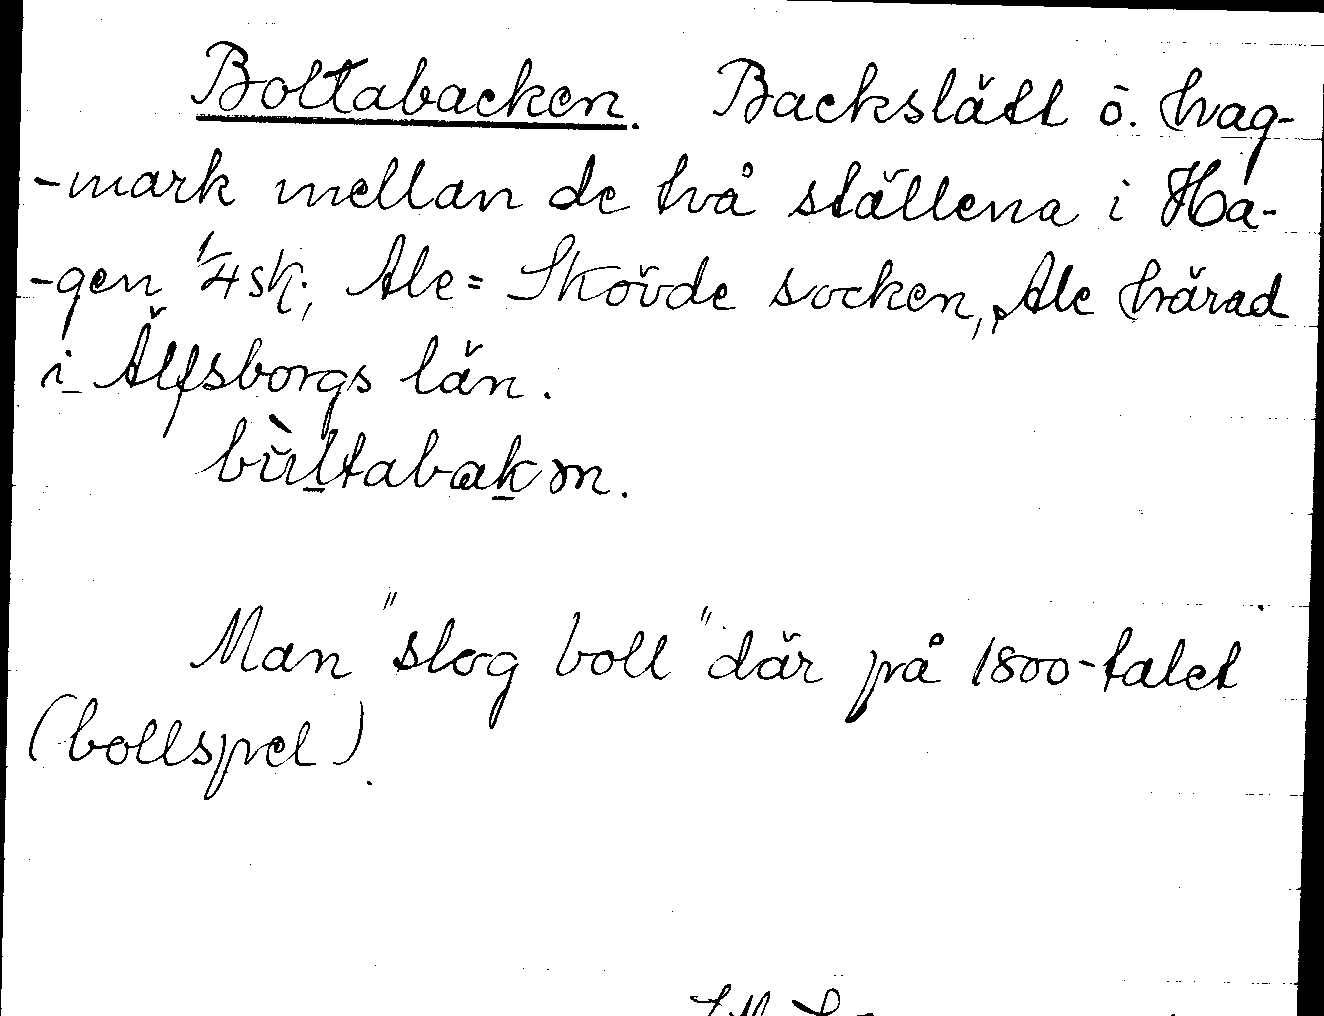 Boltabacken. Backslätt o. hag-
-mark mellan de två ställena i Ha-
-gen 1/4 sk., Ale=Skövde socken, Ale härad
i Älfsborgs län.
bùltabakm.
Man "slog boll" där på 1800-talet
(bollspel).